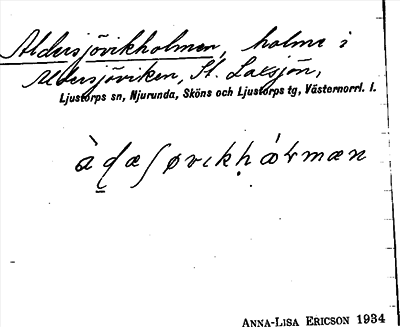 Aldersjövikholmen, holme i
Aldersjöviken, St. Laxsjön,
Ljustorps sn, Njurunda, Sköns och Ljustorps tg, Västernorrl. l.
ANNA-LISA ERICSON 1934